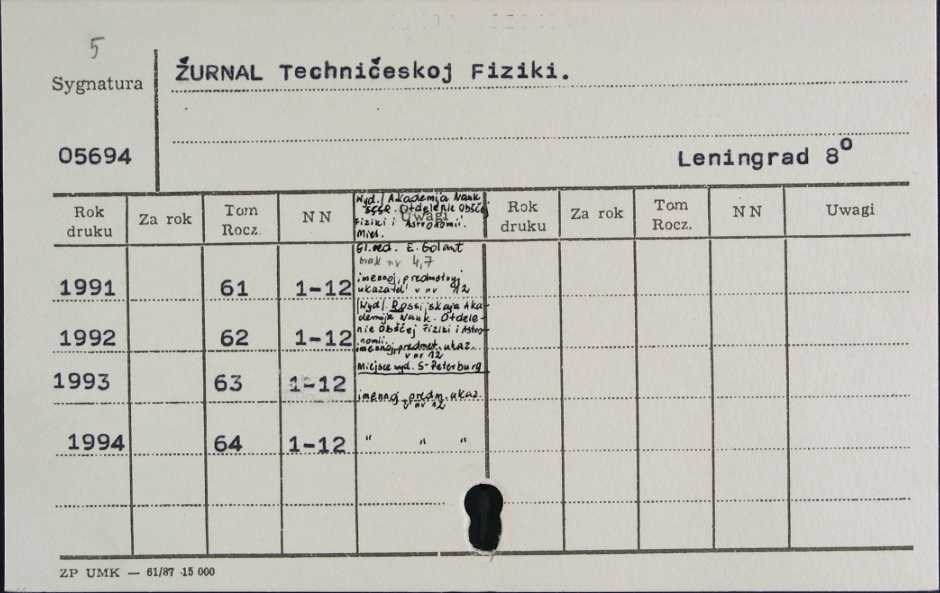 5
Sygnatura
05694
ŽURNAL Techničeskoj Fiziki.
Leningrad 8⁰
Rok druku | Za rok | Tom Rocz. | NN | Uwagi | Rok druku | Za rok | Tom Rocz. | NN | Uwagi
Wyd. Akademija Nauk
SSSR. Otdelenie Obščej
Fiziki i Astronomii.
Mies.
Gl. red. E. Golant
brak nr 4,7
1991 | 61 | 1-12 | imennoj, predmetnyj
ukazatel' v nr 12
Wyd. Rossijskaja Aka-
demija Nauk. Otdele-
nie Obščej Fiziki i Astro-
nomii.
1992 | 62 | 1-12 | imennoj, predmet. ukaz.
v nr 12
Miejsce wyd. S-Peterburg
1993 | 63 | 1-12 | imennoj, predm. ukaz.
v nr 12
1994 | 64 | 1-12 | " " "
ZP UMK — 61/87 15 000